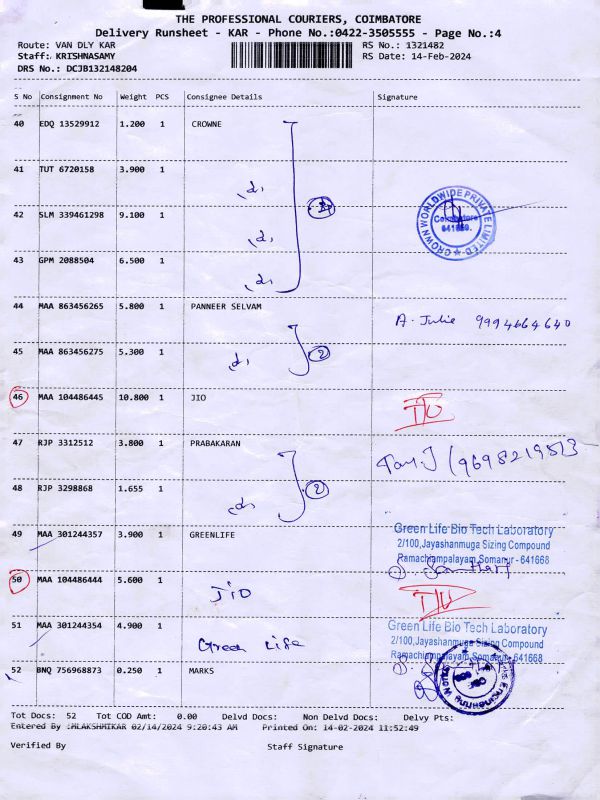 THE PROFESSIONAL COURIERS, COIMBATORE
Delivery Runsheet - KAR - Phone No.:0422-3505555 - Page No.:4
Route: VAN DLY KAR RS No.: 1321482
Staff: KRISHNASAMY RS Date: 14-Feb-2024
DRS No.: DCJB132148204
S No Consignment No Weight PCS Consignee Details Signature
40 EDQ 13529912 1.200 1 CROWNE
41 TUT 6720158 3.900 1
42 SLM 339461298 9.100 1
CROWN WORLDWIDE PRIVATE LIMITED
Coimbatore
43 GPM 2088504 6.500 1
44 MAA 863456265 5.800 1 PANNEER SELVAM
A. Julie 9994664640
45 MAA 863456275 5.300 1 2
46 MAA 104486445 10.800 1 JIO
47 RJP 3312512 3.800 1 PRABAKARAN
48 RJP 3298868 1.655 1 2
49 MAA 301244357 3.900 1 GREENLIFE
Green Life Bio Tech Laboratory
2/100,Jayashanmuga Sizing Compound
Ramachiampalayam,Somanur - 641668
50 MAA 104486444 5.600 1 JIO
51 MAA 301244354 4.900 1 Green Life
Green Life Bio Tech Laboratory
2/100,Jayashanmuga Sizing Compound
Ramachiampalayam,Somanur - 641668
52 BNQ 756968873 0.250 1 MARKS
Tot Docs: 52 Tot COD Amt: 0.00 Delvd Docs: Non Delvd Docs: Delvy Pts:
Entered By :MLAKSHMIKAR 02/14/2024 9:20:43 AM Printed On: 14-02-2024 11:52:49
Verified By Staff Signature